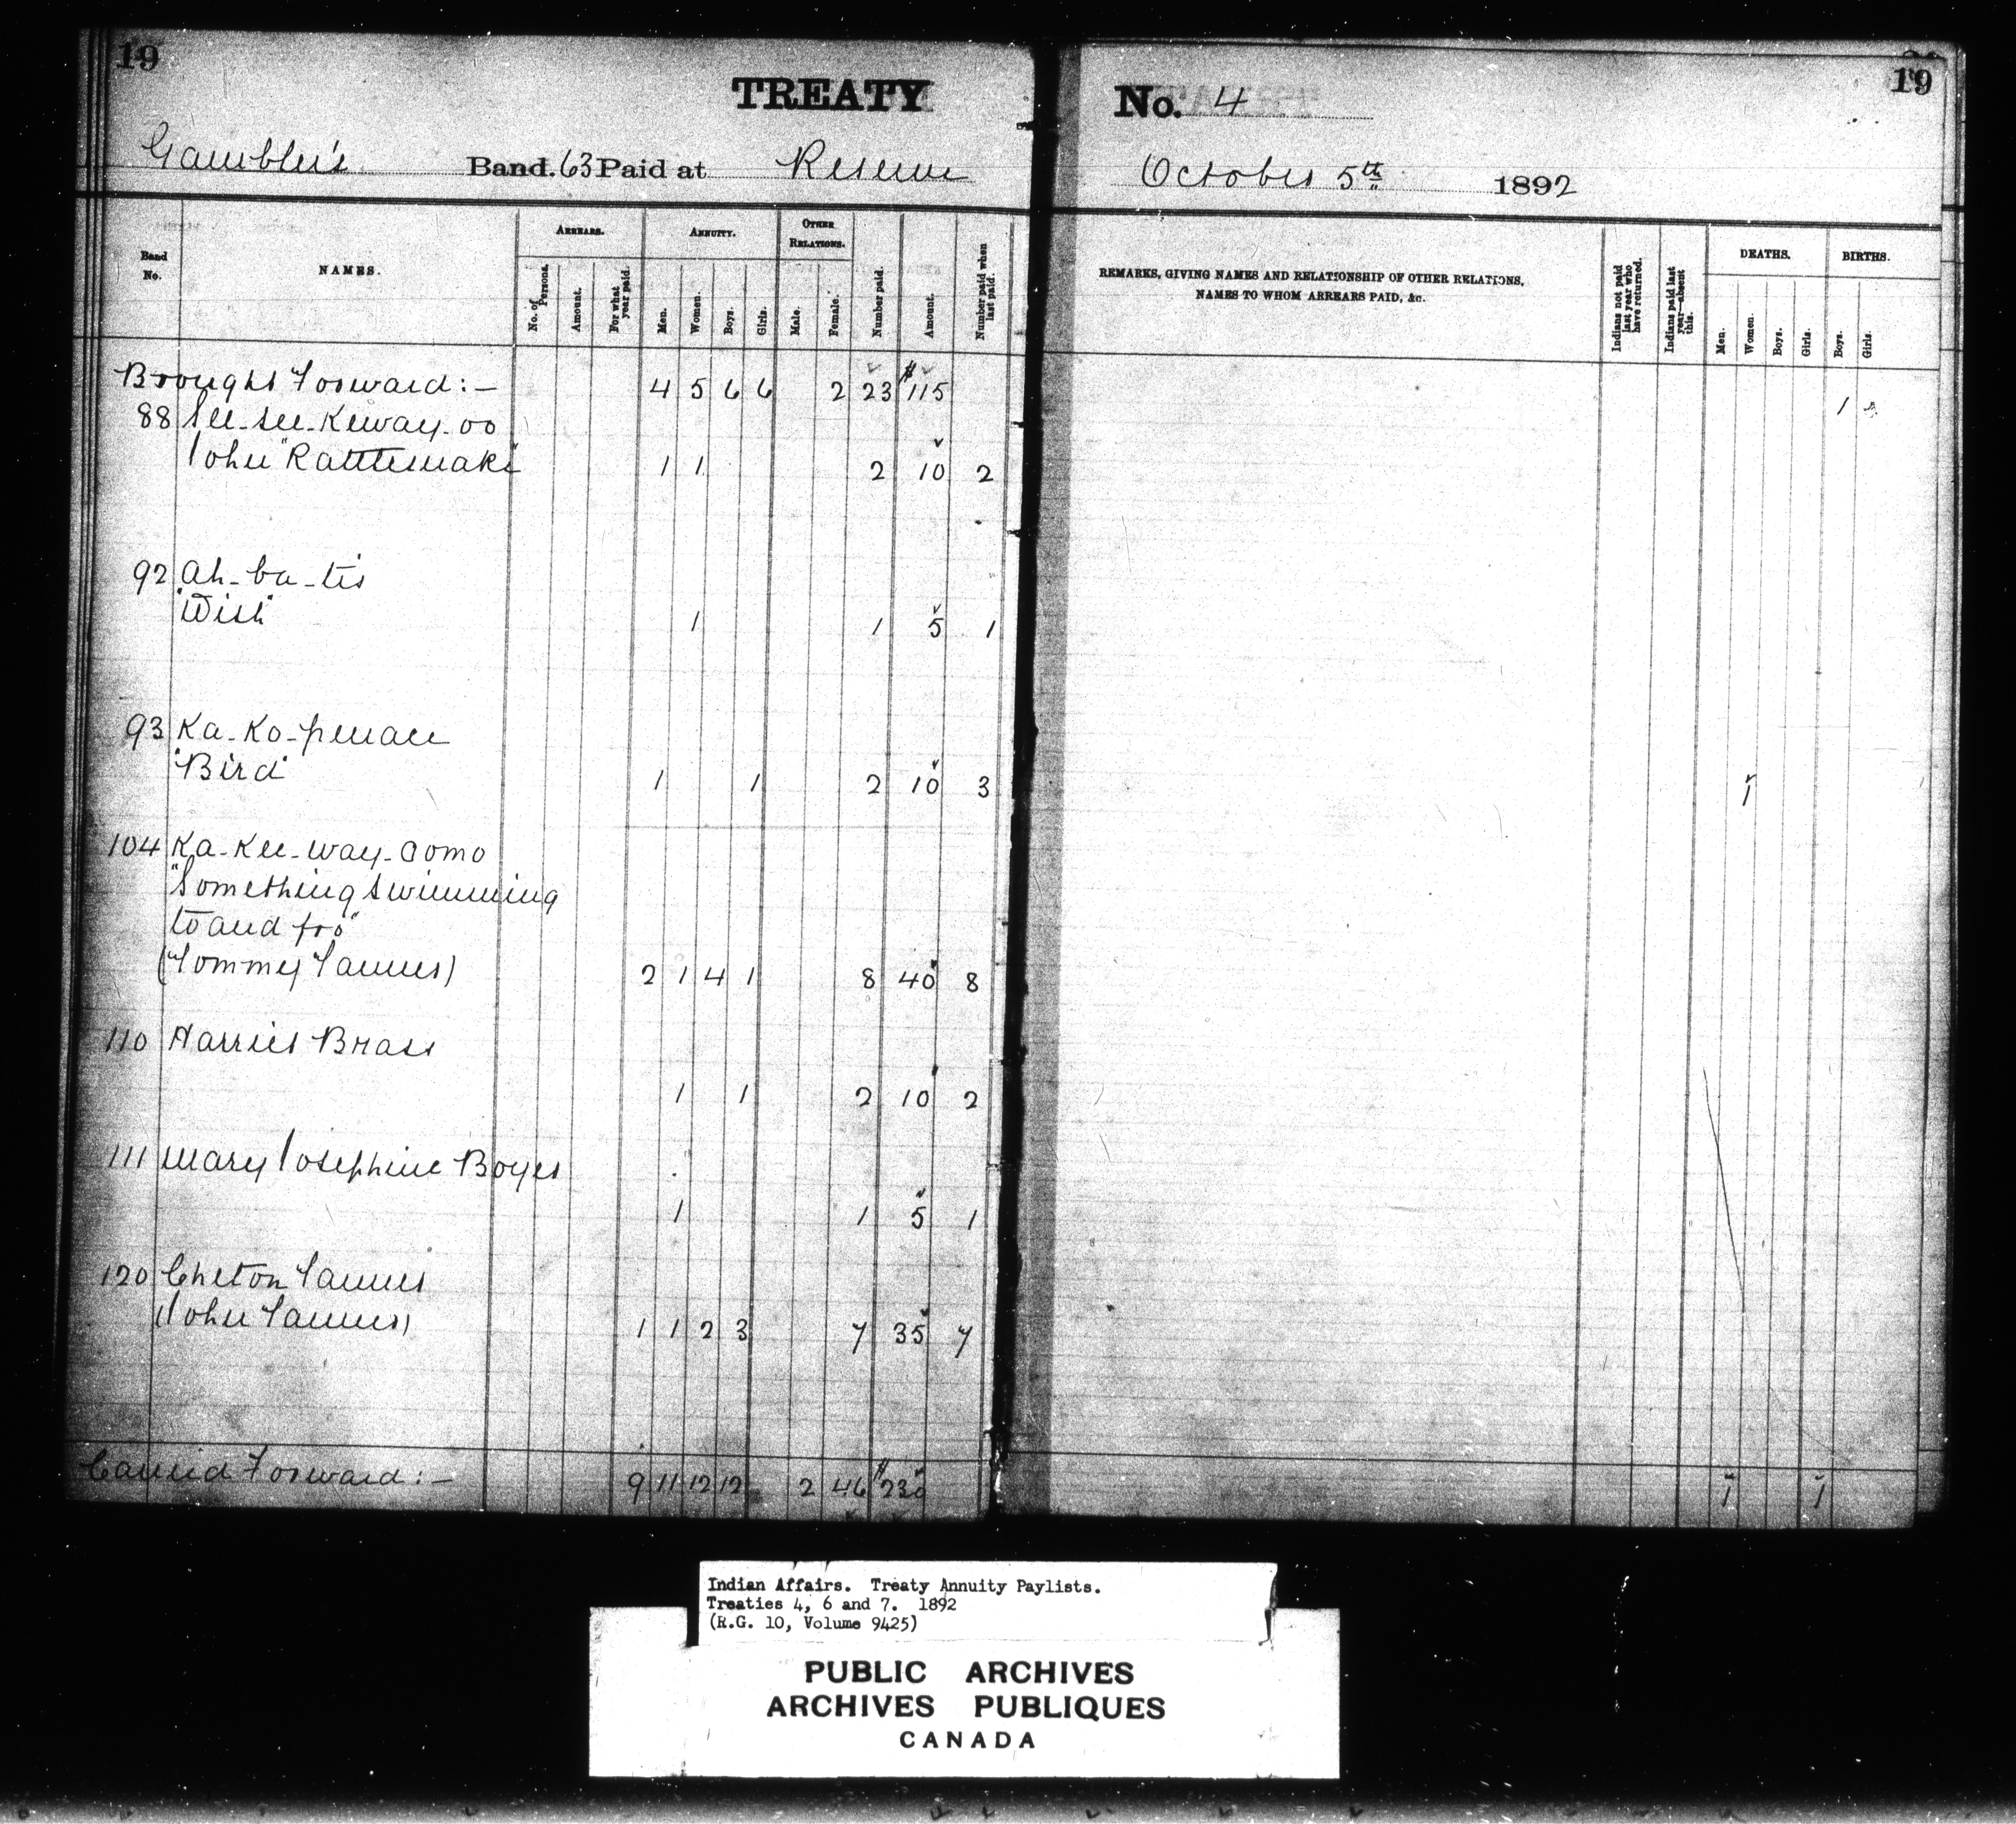 19
TREATY No. 4
19
Gambler's Band. 63 Paid at Reserve October 5th 1892
Band No.
NAMES.
ARREARS.
No. of Persons.
Amount.
For what year paid.
ANNUITY.
Men.
Women.
Boys.
Girls.
OTHER RELATIONS.
Male.
Female.
Number paid.
Amount.
Number paid when last paid.
REMARKS, GIVING NAMES AND RELATIONSHIP OF OTHER RELATIONS,
NAMES TO WHOM ARREARS PAID, &c.
Indians not paid last year who have returned.
Indians paid last year—absent this.
DEATHS.
Men.
Women.
Boys.
Girls.
BIRTHS.
Boys.
Girls.
Brought Forward:— 4 5 6 6 2 23 $115 1
88 See-see-Keway-oo
John "Rattlesnake" 1 1 2 10 2
92 Ah-ba-tis
"Wish" 1 1 5 1
93 Ka-Ko-penace
"Bird" 1 1 2 10 3 1
104 Ka-Kee-way-aomo
"Something swimming
to and fro"
(Tommy Tanner) 2 1 4 1 8 40 8
110 Harriet Brass
1 1 2 10 2
111 Mary Josephine Boyer
1 1 5 1
120 Cheton Tanner
(John Tanner) 1 1 2 3 7 35 7
Carried Forward:— 9 11 12 12 2 46 $230 1 1
Indian Affairs. Treaty Annuity Paylists.
Treaties 4, 6 and 7. 1892
(R.G. 10, Volume 9425)
PUBLIC ARCHIVES
ARCHIVES PUBLIQUES
CANADA